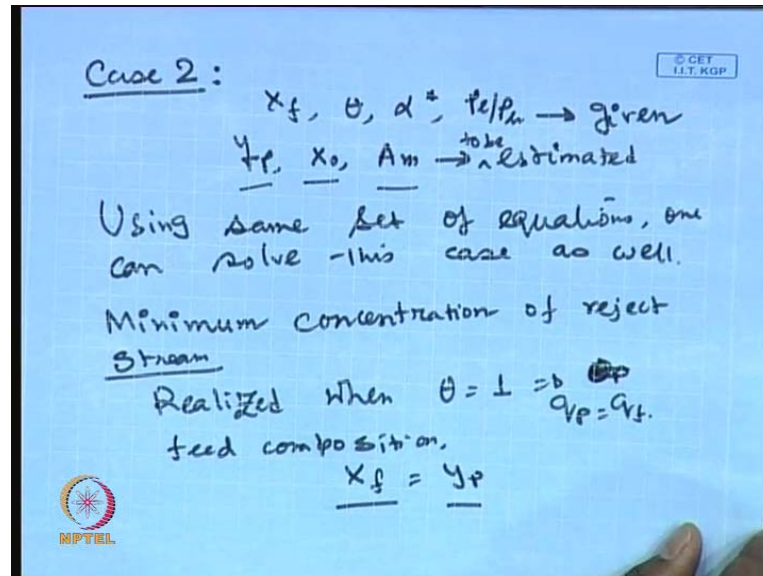 © CET
I.I.T. KGP
Case 2:
x_f, θ, α*, P_l/P_h → given
y_p, x_0, A_m → to be estimated
Using same set of equations, one
can solve this case as well.
Minimum concentration of reject
stream
Realized when θ = 1 ⇒
q_p = q_f.
feed composition.
x_f = y_p
NPTEL